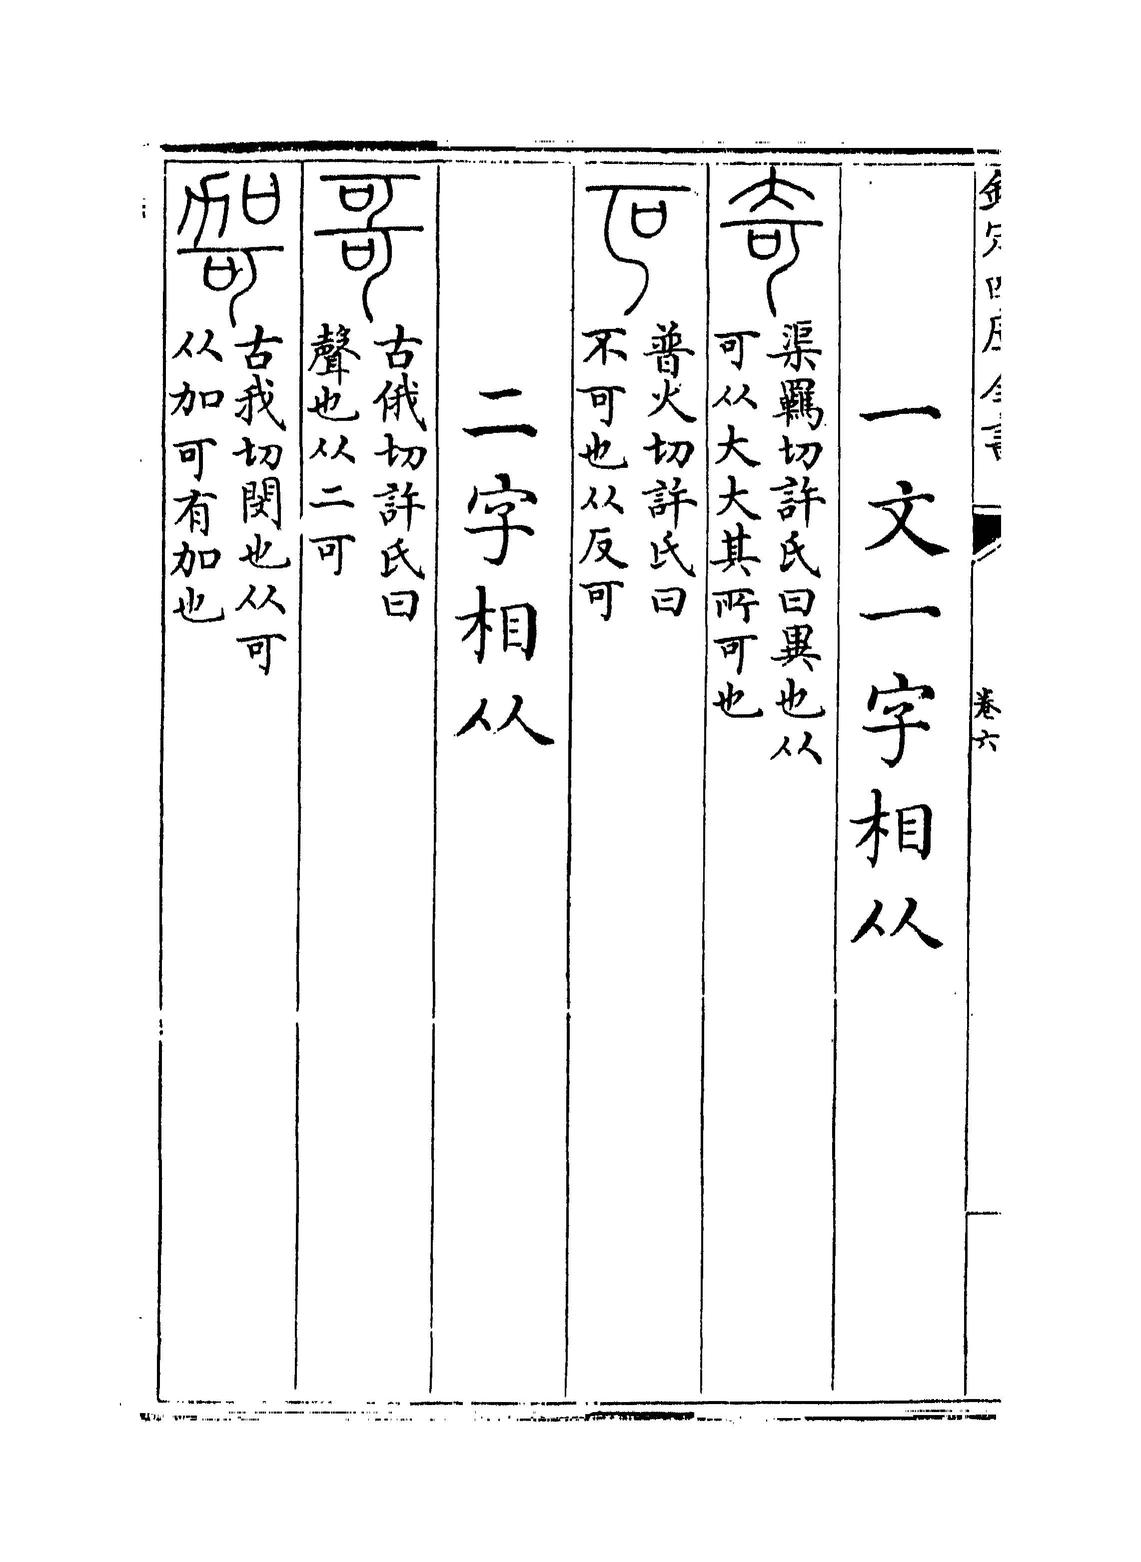 欽定四庫全書
卷六
一文一字相从
奇
渠羈切許氏曰異也从
可从大大其所可也
叵
普火切許氏曰
不可也从反可
二字相从
哥
古俄切許氏曰
聲也从二可
哿
古我切閔也从可
从加可有加也